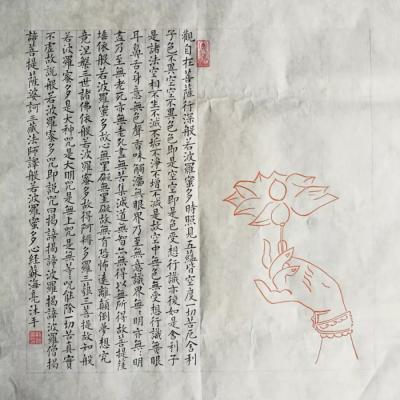 觀自在菩薩行深般若波羅蜜多時照見五蘊皆空度一切苦厄舍利
子色不異空空不異色色即是空空即是色受想行識亦復如是舍利子
是諸法空相不生不滅不垢不淨不增不減是故空中無色無受想行識無眼
耳鼻舌身意無色聲香味觸法無眼界乃至無意識界無無明亦無無明
盡乃至無老死亦無老死盡無苦集滅道無智亦無得以無所得故菩提薩
埵依般若波羅蜜多故心無罣礙無罣礙故無有恐怖遠離顛倒夢想究
竟涅槃三世諸佛依般若波羅蜜多故得阿耨多羅三藐三菩提故知般
若波羅蜜多是大神咒是大明咒是無上咒是無等等咒能除一切苦真實
不虛故說般若波羅蜜多咒即說咒曰揭諦揭諦波羅揭諦波羅僧揭
諦菩提薩婆訶三藏法師譯般若波羅蜜多心經蘇海亮沐手